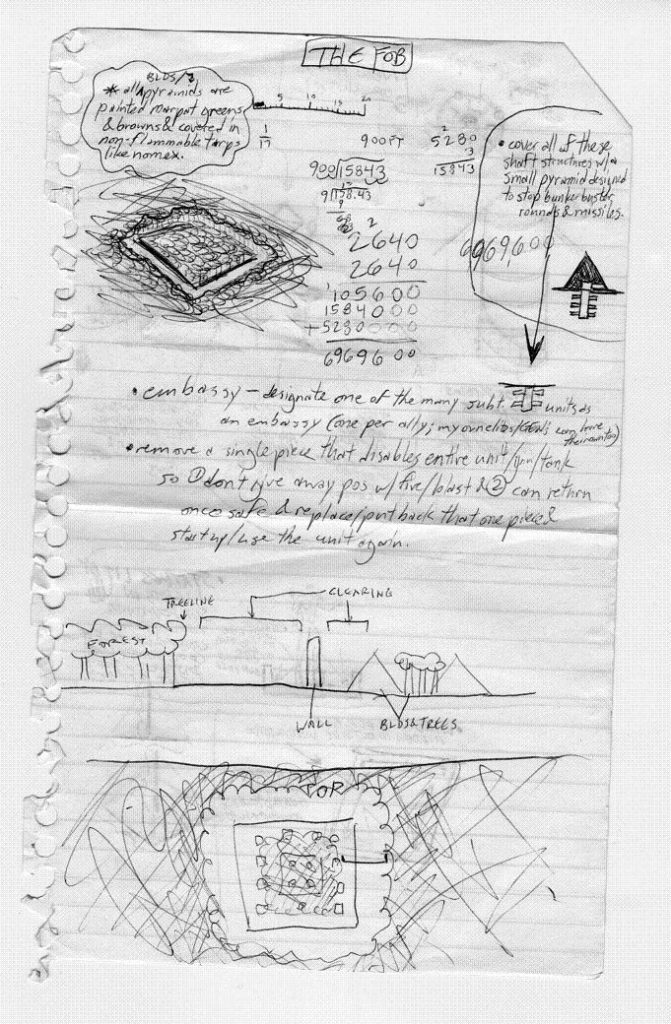 THE FOB
BLDS/
* all pyramids are
painted marpat greens
& browns & covered in
non-flammable tarps
like nomex.
5 10 15 20
1
17
900FT
900 15843
9 158.43
9
68
5280
3
15843
2
2640
2640
105600
1584000
+5280000
6969600
• cover all of these
shaft structures w/ a
small pyramid designed
to stop bunker buster
rounds & missiles.
6969600
• embassy – designate one of the many subt. units as
an embassy (one per ally; my ownelios/GEN; can have their own too)
• remove a single piece that disables entire unit/gun/tank
so ① don't give away pos w/ fire/blast & ② can return
once safe & replace/put back that one piece &
start up/use the unit again.
TREELINE
CLEARING
FOREST
WALL
BLDS & TREES
FOR